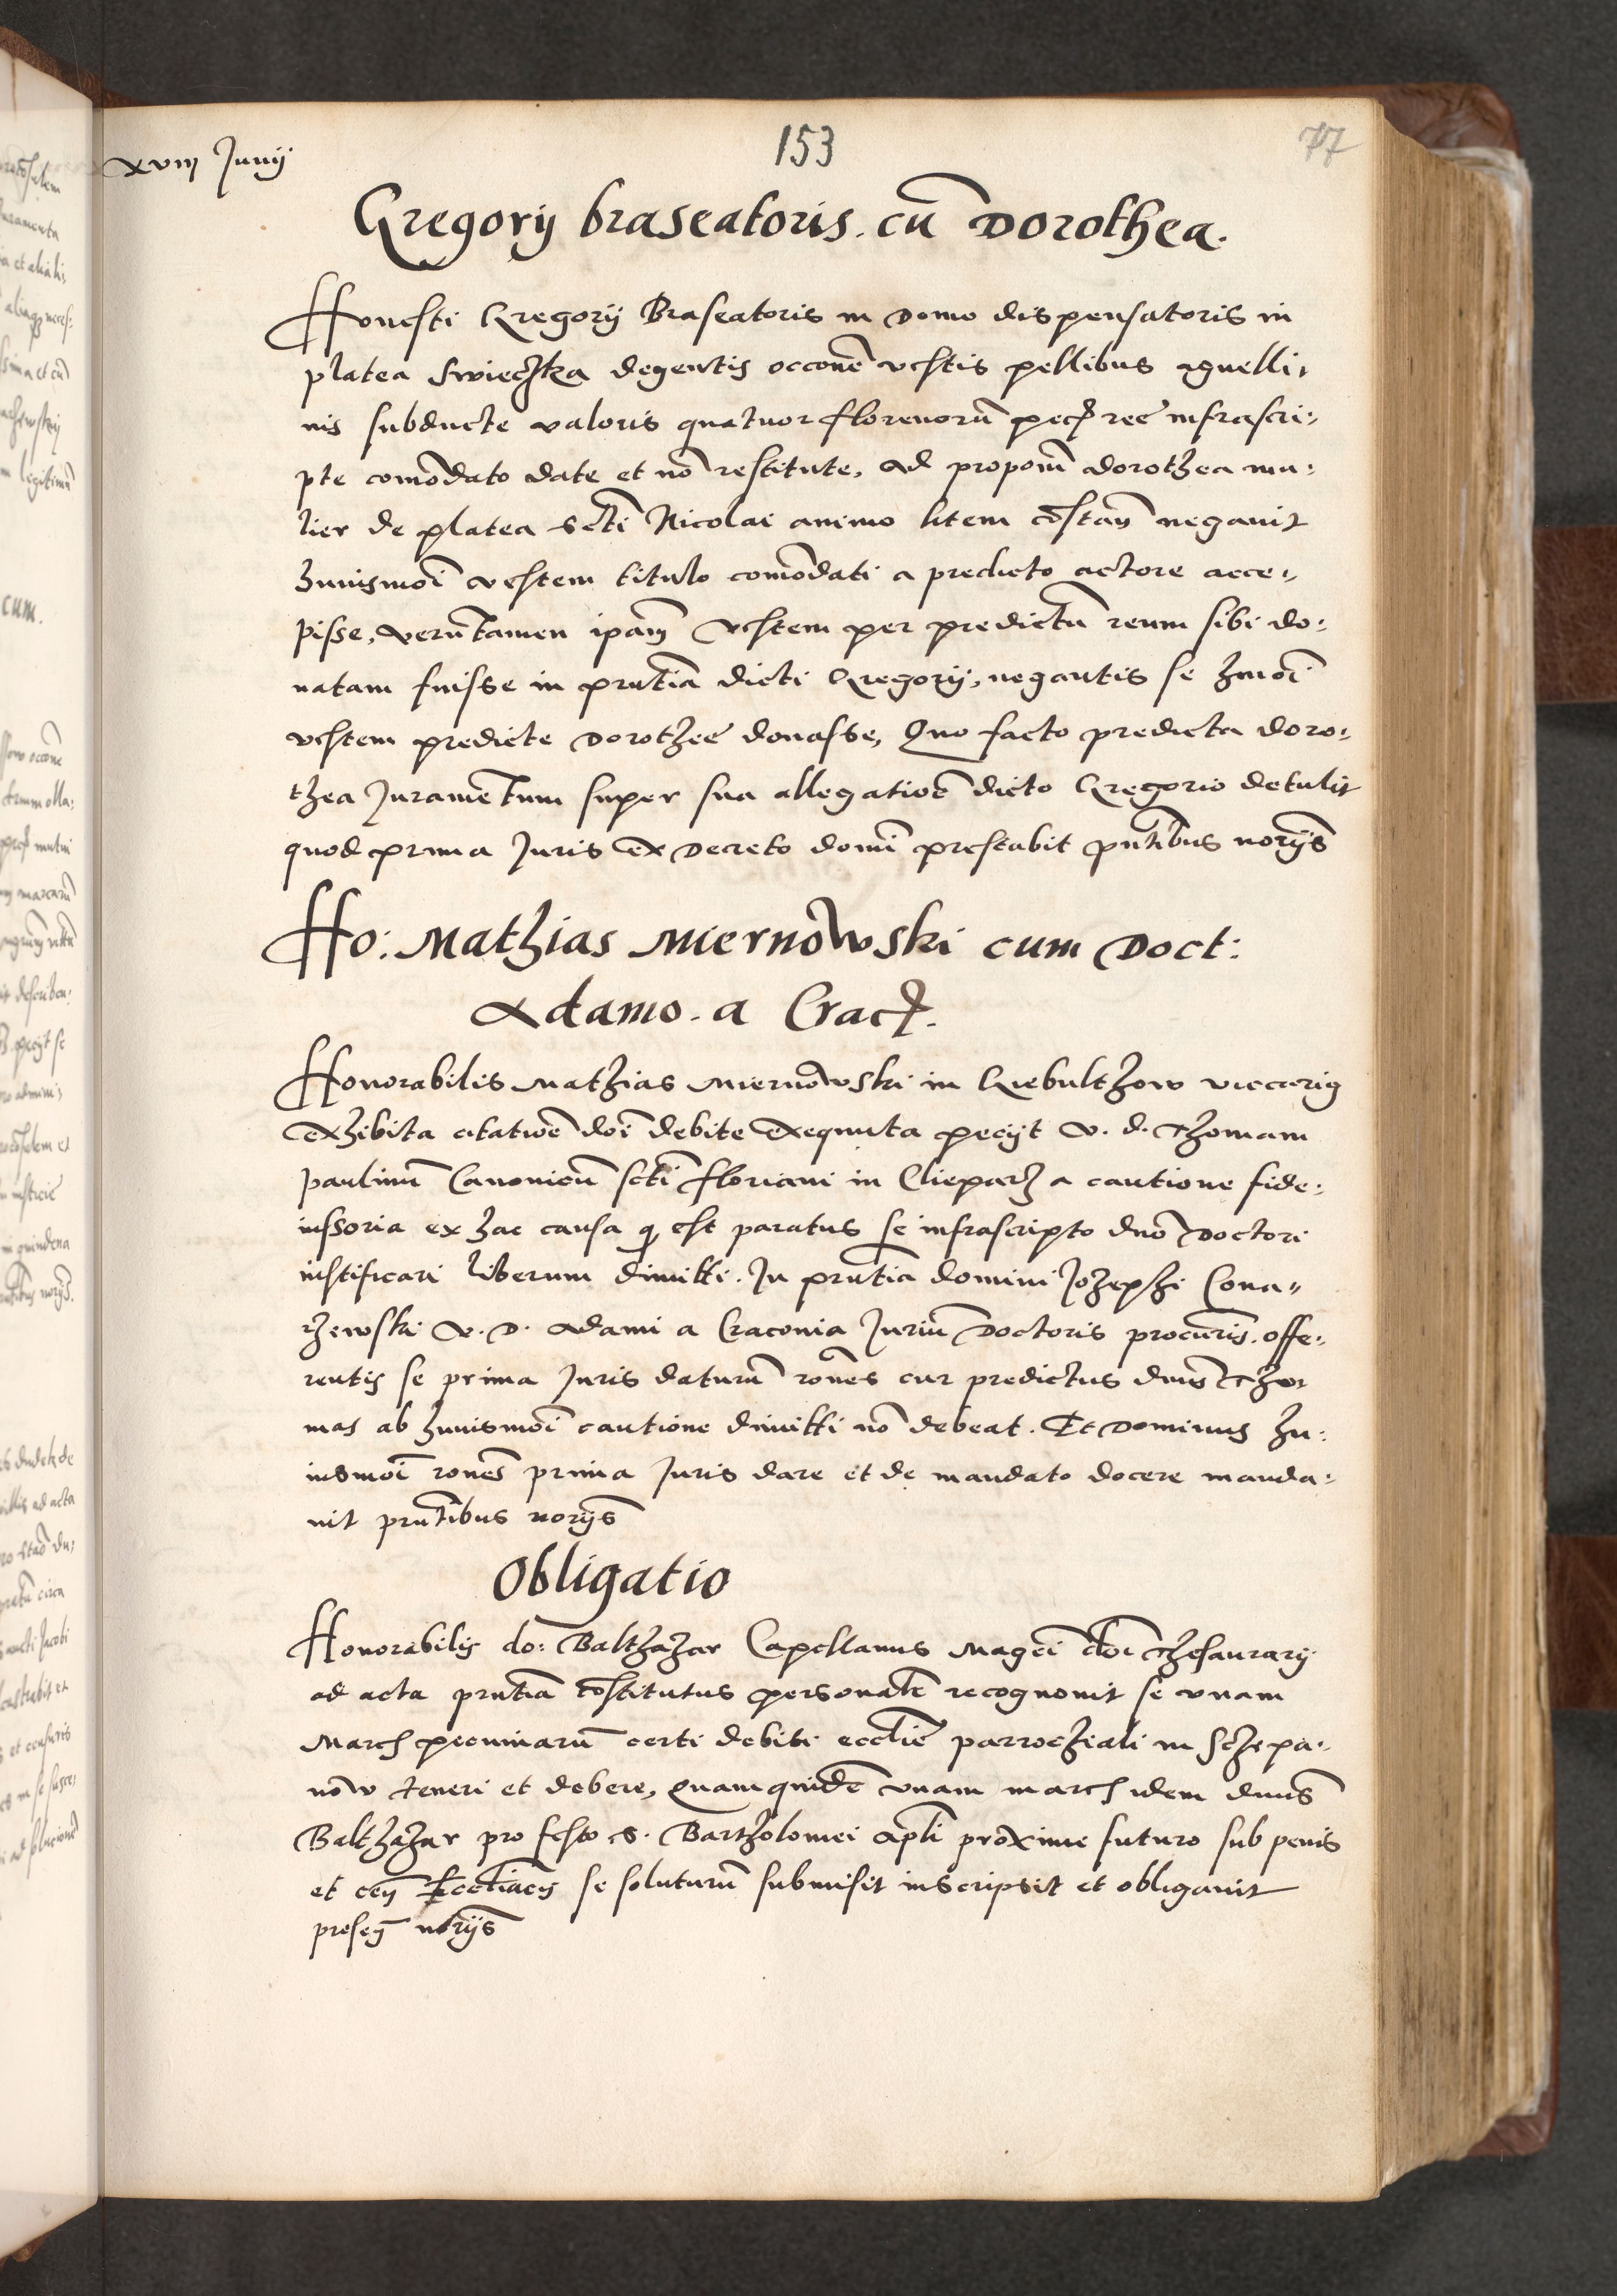 153
77
xviij Junij
Gregorij braseatoris. cū Dorothea.
Honesti Gregorij Braseatoris in domo dispensatoris in
platea Swieczka degentis occone vestis pellibus agnelli,
nis subducte valoris quatuor florenorū pec ree infrascri:
pte comodato date et no restitute, ad propom dorothea mu:
lier de platea Scti Nicolai animo litem costan negavit
huiusmoi vestem titulo comodati a predicto actore acce:
pisse, verūtamen ipam vestem per predictū reum sibi do:
natam fuisse in prntia dicti Gregorij, negantis se hmoi
vestem predicte Dorothee donasse, Quo facto predicta doro:
thea Juramentum super sua allegatioe dicto Gregorio detulit
quod prima Juris ex Decreto domi prestabit pntibus norijs
Ho: Mathias Miernowski cum Doct:
Adamo. a Crac.
Honorabilis Mathias Miernowski in Giebulthow viccarig
exhibita citatioe doi debite exequuta pecijt V. d. Thomam
paulinū Canonicū scti floriani in Clieparz a cautione fide:
iussoria ex hac causa q est paratus se infrascripto dno Doctori
iustificari liberum dimitti. In prntia domini Jozephi Cona,,
rzewski V. D. Adami a Craconia Juriū Doctoris procuris. offe:
rentis se prima Juris daturū rones cur predictus dnus Tho:
mas ab huiusmoi cautione dimitti no debeat. Et Dominus hu:
iusmoi rones prima Juris dare et de mandato docere manda:
uit prntibus norijs
Obligatio
Honorabilis do: Balthazar Capellanus Magci doi Thesaurarij
ad acta prntia costitutus personale recognouit se vnam
March pecuniarū certi debiti ecclie parrochiali in Sczepa:
now teneri et debere, quam quide vnam march idem dnus
Balthazar pro festo S. Bartholomei apli proxime futuro sub penis
et cen Eccliacis se soluturū submisit inscripsit et obligauit
presen norijs